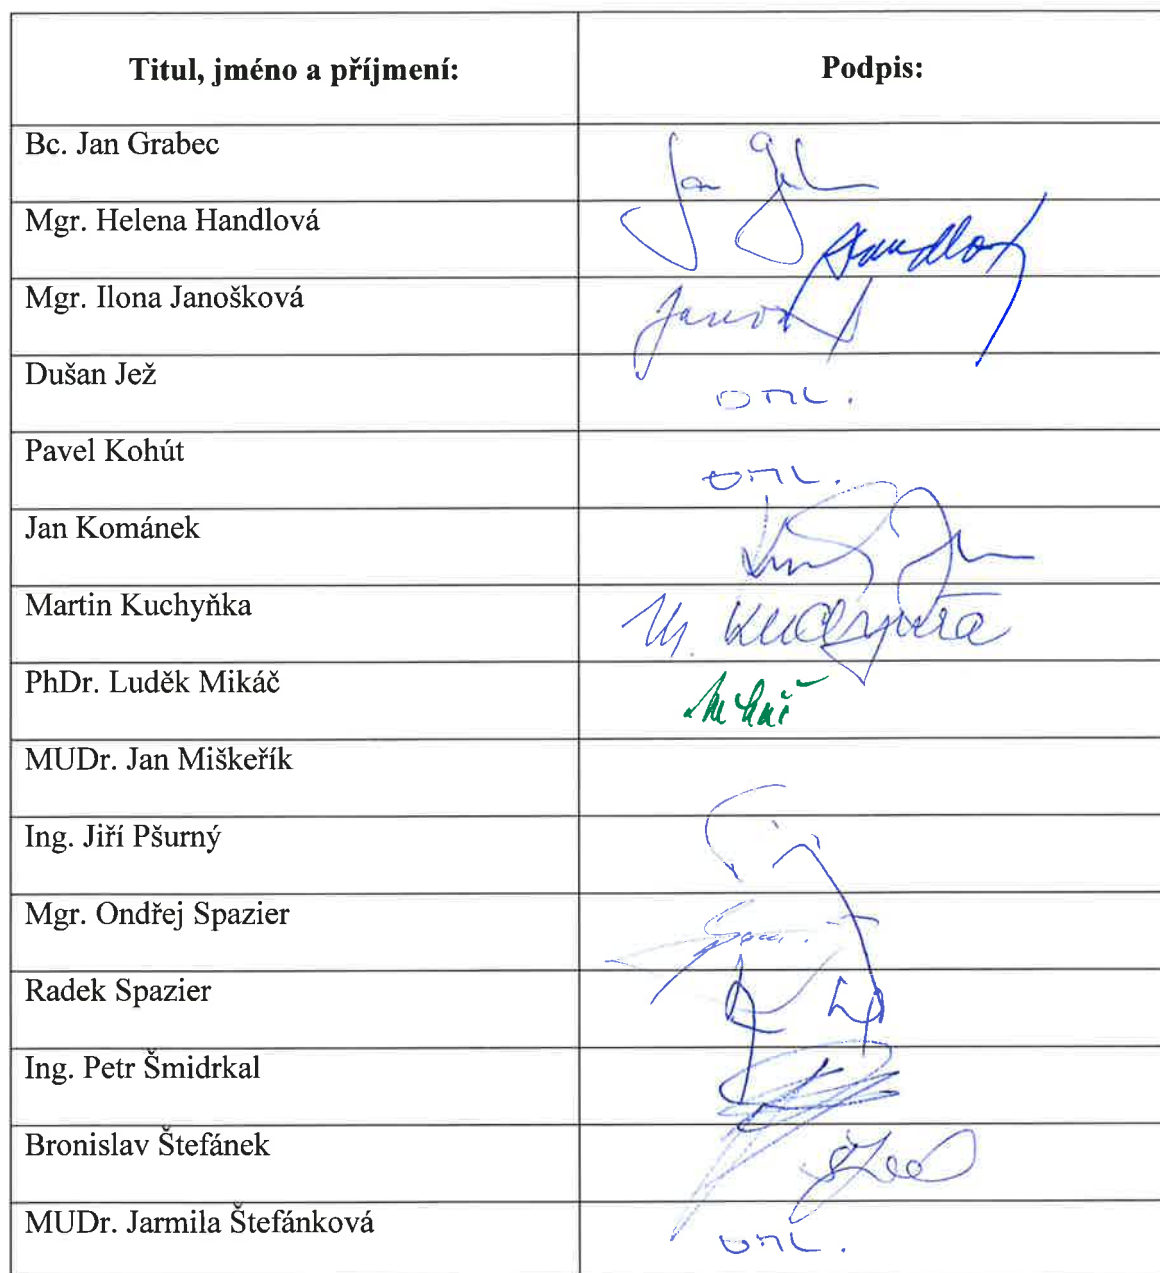 Titul, jméno a příjmení: Podpis:
Bc. Jan Grabec
Mgr. Helena Handlová
Mgr. Ilona Janošková
Dušan Jež OML.
Pavel Kohút OML.
Jan Kománek
Martin Kuchyňka M. Kuchyňka
PhDr. Luděk Mikáč Mikáč
MUDr. Jan Miškeřík
Ing. Jiří Pšurný
Mgr. Ondřej Spazier
Radek Spazier
Ing. Petr Šmidrkal
Bronislav Štefánek
MUDr. Jarmila Štefánková OML.